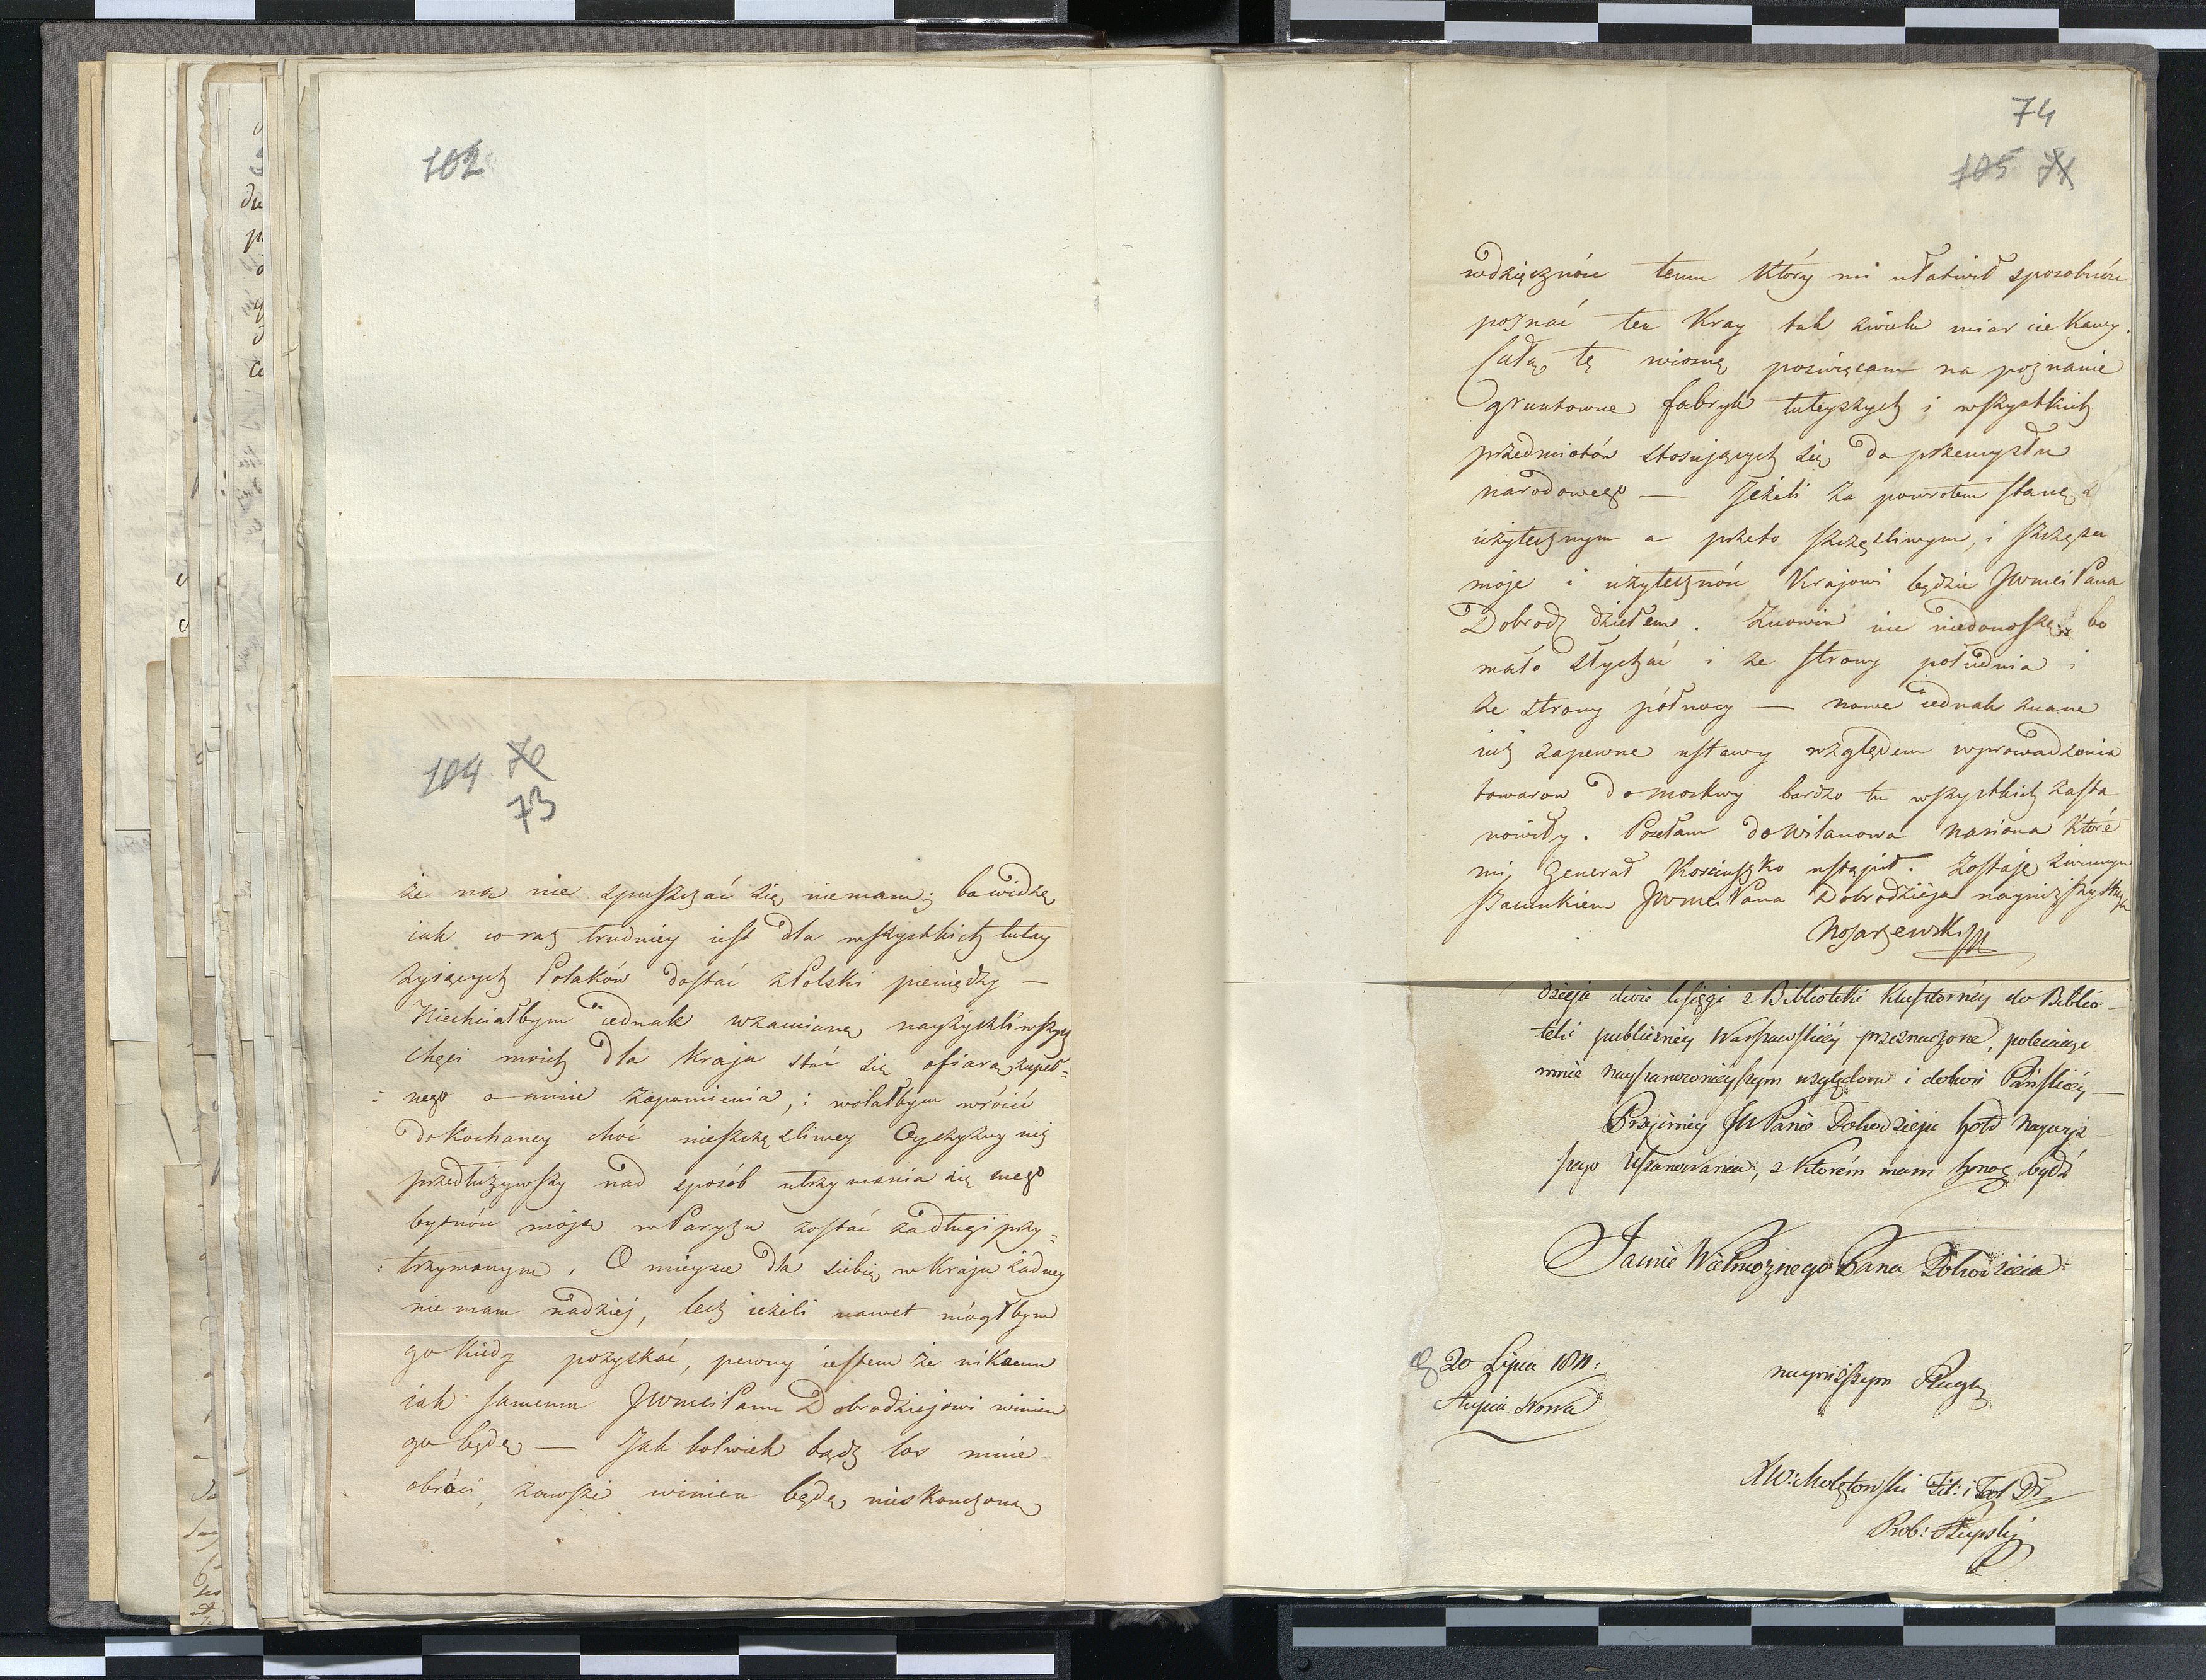 102
104 70
73
że na nie spuszczać się niemam; bo widzę
iak coraz trudniey iest dla wszystkich tutay
żyiących Polaków dostać z Polski pieniędzy —
Niechciałbym iednak wzamianę nayżyczliwszych
chęci moich dla Kraju stać się ofiarą zupeł=
nego o mnie zapomnienia, i wolałbym wrócić
do Kochaney choć nieszczęśliwey Oyczyzny niż
przedłużywszy nad sposób utrzymania się mego
bytność moją w Paryżu zostać za długi przy=
trzymanym. O mieysce dla siebie w Kraju żadney
nie mam nadziej, lecz ieżeli nawet mógłbym
go kiedy pozyskać, pewny iestem że nikomu
iak samemu JWmci Panu Dobrodziejowi winien
go będę — Jak kolwiek bądz los mnie
obróci, zawsze winien będę nieskończoną
74
105 71
wdzięczność temu który mi ułatwił sposobność
poznać ten Kray tak zwielu miar ciekawy.
Całą tę wiosnę poświęcam na poznanie
gruntowne fabryk tuteyszych i wszystkich
przedmiotów stosujących się do przemysłu
narodowego — Jeżeli za powrotem stanę się
użytecznym a przeto szczęśliwym, i szczęście
moje i użyteczność Krajowi będzie JWmci Pana
Dobrodz dziełem. Znowin nic niedonoszę bo
mało słychać i ze strony południa i
ze strony północy — nowe iednak znane
iuż zapewne ustawy względem wprowadzenia
towarow do Moskwy bardzo tu wszystkich zasta
nowiły. Posełam do Wilanowa nasiona które
mi Generał Kościuszko ustąpił. Zostaję z winnym
szacunkiem JWmci Pana Dobrodzieja nayniższy sługa
dzieja dwie księgi z Biblioteki Klasztornéy do Biblio-
teki publicznéy Warszawskiéy przeznaczone, polecaiąc
mnie nayszanownieyszym względom i dobroci Pańskiéy —
Przyimiéy JW Panie Dobrodzieju hołd naywyż-
szego Uszanowania, z którém mam honor bydź
Jaśnie Wielmożnego Pana Dobrodzieia
D 20 Lipca 1811:
Słupia Nowa
nayniższym Sługą
Prob: Słupski